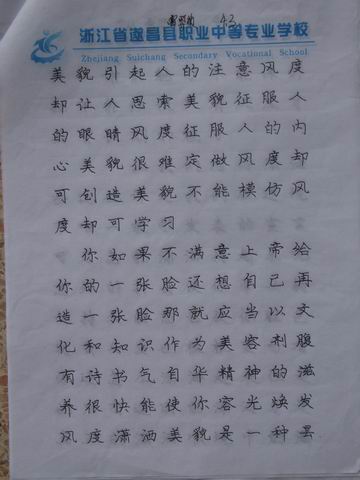 4.2
浙江省遂昌县职业中等专业学校
Zhejiang Suichang Secondary Vocational School
美貌引起人的注意风度
却让人思索美貌征服人
的眼睛风度征服人的内
心美貌很难定做风度却
可创造美貌不能模仿风
度却可学习
你如果不满意上帝给
你的一张脸还想自己再
造一张脸那就应当以文
化和知识作为美容利腹
有诗书气自华精神的滋
养很快能使你容光焕发
风度潇洒美貌是一种昙